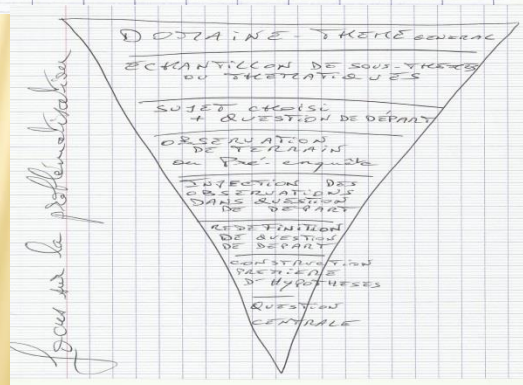 Focus sur la problématisation
DOMAINE - THEME GENERAL
ECHANTILLON DE SOUS-THEMES
OU THEMATIQUES
SUJET CHOISI
+ QUESTION DE DÉPART
OBSERVATION
DE TERRAIN
ou Pré-enquête
INJECTION DES
OBSERVATIONS
DANS QUESTION
DE DEPART
REDEFINITION
DE QUESTION
DE DEPART
CONSTRUCTION
PREMIERE
D'HYPOTHESES
QUESTION
CENTRALE